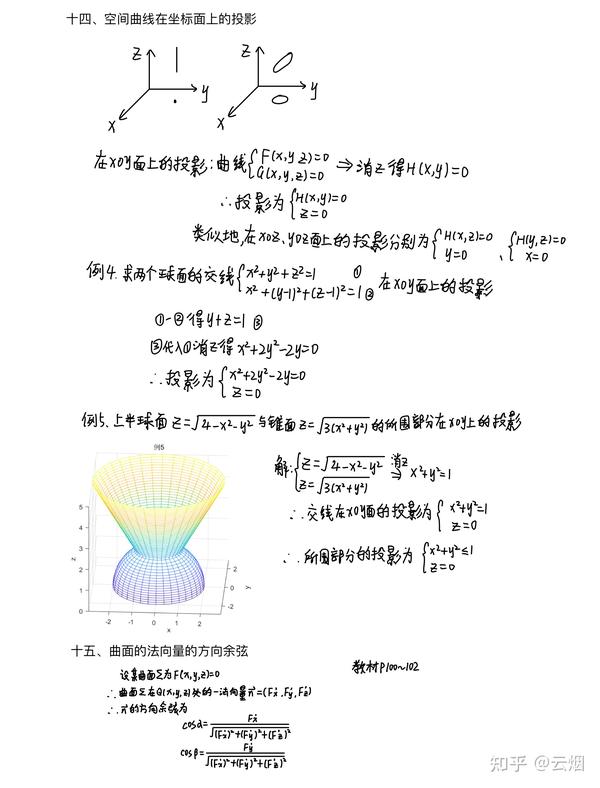 十四、空间曲线在坐标面上的投影
z z
y y
x x
在xoy面上的投影:曲线{F(x,y,z)=0 ⇒消z得H(x,y)=0
G(x,y,z)=0
∴投影为{H(x,y)=0
z=0
类似地,在xoz、yoz面上的投影分别为{H(x,z)=0 、{H(y,z)=0
y=0 x=0
例4.求两个球面的交线{x²+y²+z²=1 ① 在xoy面上的投影
x²+(y-1)²+(z-1)²=1 ②
①-②得y+z=1 ③
③代入①消z得x²+2y²-2y=0
∴投影为{x²+2y²-2y=0
z=0
例5、上半球面z=√(4-x²-y²)与锥面z=√(3(x²+y²))的所围部分在xoy上的投影
例5
5
4
3
2
1
0
z
-2 -1 0 1 2
x
2
0
-2
y
解:{z=√(4-x²-y²) 消z → x²+y²=1
z=√(3(x²+y²))
∴交线在xoy面的投影为{x²+y²=1
z=0
∴所围部分的投影为{x²+y²≤1
z=0
十五、曲面的法向量的方向余弦
教材P100~102
设某曲面Σ为F(x,y,z)=0
∴曲面Σ在Q(x,y,z)处的一法向量n=(Fx',Fy',Fz')
∴n的方向余弦为
cosα=Fx'/√((Fx')²+(Fy')²+(Fz')²)
cosβ=Fy'/√((Fx')²+(Fy')²+(Fz')²)
知乎 @云烟